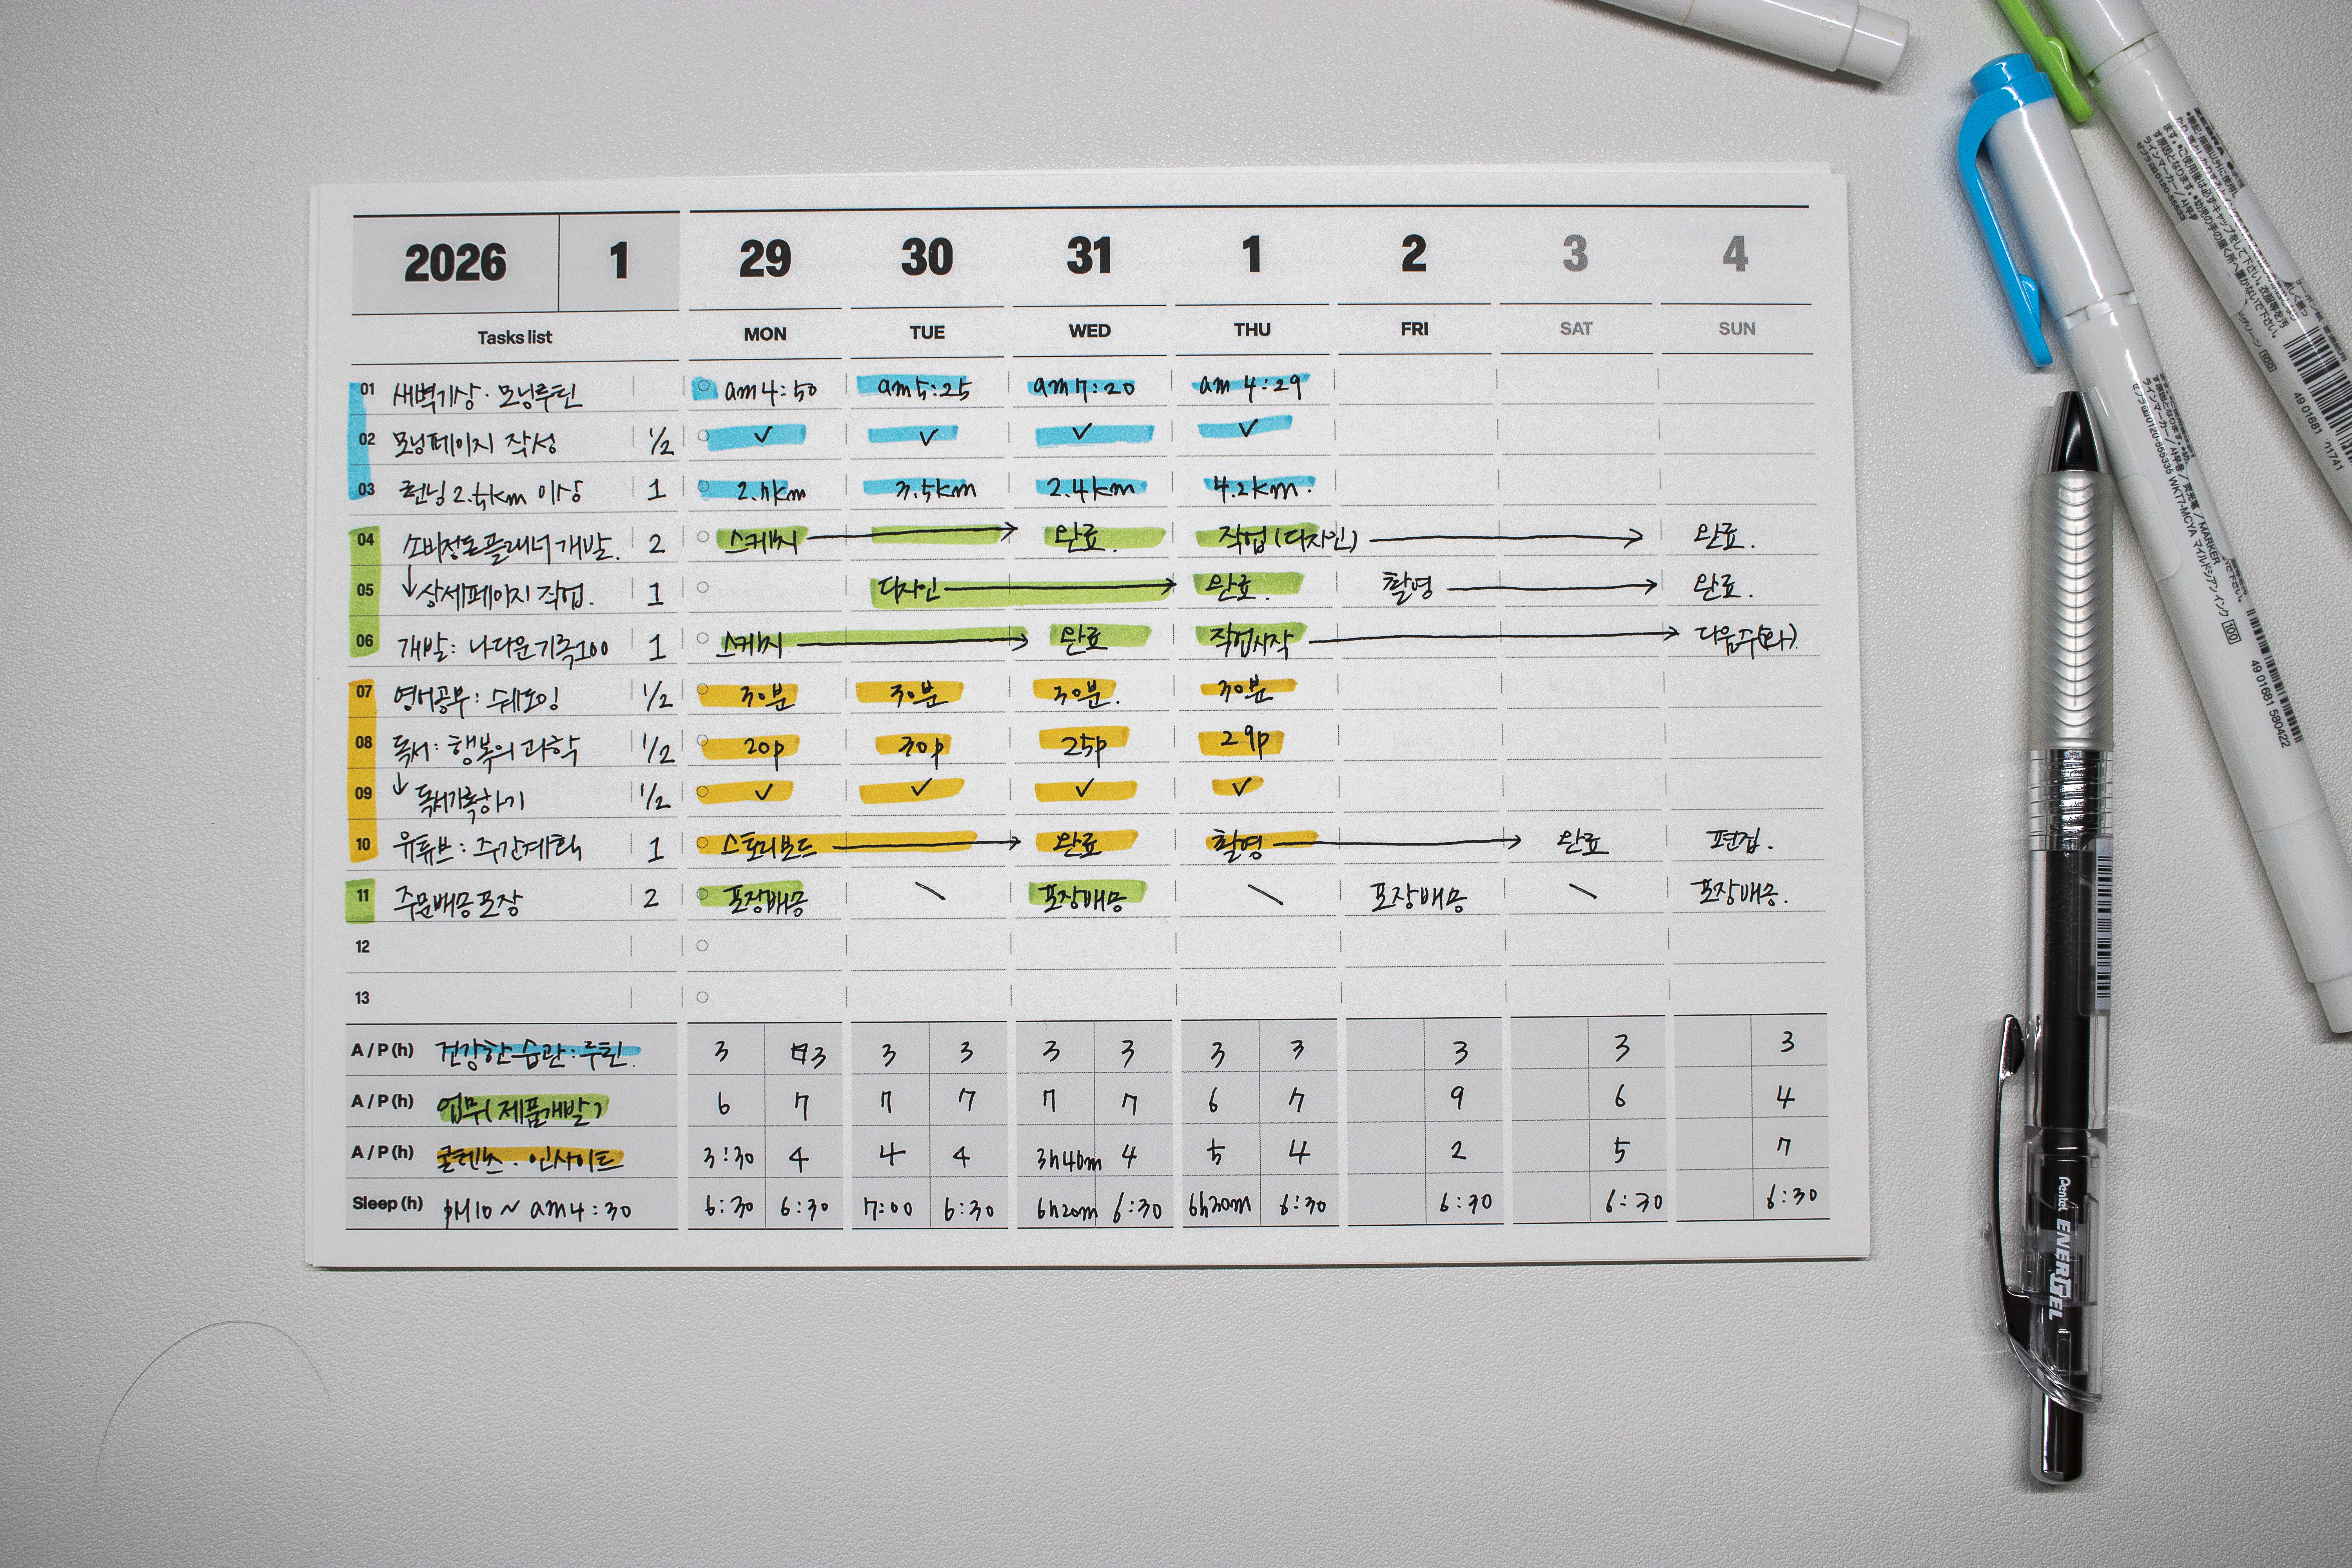 2026 1 29 30 31 1 2 3 4
Tasks list MON TUE WED THU FRI SAT SUN
01 새벽기상 · 모닝루틴 am 4:50 am 5:25 am 7:20 am 4:29
02 모닝페이지 작성 1/2 ✓ ✓ ✓ ✓
03 런닝 2.5km 이상 1 2.7km 3.5km 2.4km 4.2km.
04 소비정도플래너 개발. 2 스케치 → 완료. 작업(디자인) → 완료.
05 ↓상세페이지 작업. 1 디자인 → 완료. 촬영 → 완료.
06 개발: 나다운기록100 1 스케치 → 완료 작업시작 → 다음주(화).
07 영어공부: 쉐도잉 1/2 30분 30분 30분. 30분
08 독서: 행복의 과학 1/2 20p 30p 25p 29p
09 ↓ 독서기록하기 1/2 ✓ ✓ ✓ ✓
10 유튜브: 주간계획 1 스토리보드 → 완료 촬영 → 완료 편집.
11 주문배송포장 2 포장배송 \ 포장배송 \ 포장배송 \ 포장배송.
12
13
A / P (h) 건강한 습관: 루틴. 3 3 3 3 3 3 3 3 3 3 3
A / P (h) 업무(제품개발) 6 7 7 7 7 7 6 7 9 6 4
A / P (h) 콘텐츠 · 인사이트 3:30 4 4 4 3h40m 4 5 4 2 5 7
Sleep (h) PM10 ~ am4:30 6:30 6:30 7:00 6:30 6h20m 6:30 6h30m 6:30 6:30 6:30 6:30
Pentel ENERGEL
ZEBRA
49 01681 11741
WKT7-MCYA マイルドシアンインク 100
49 01681 580422